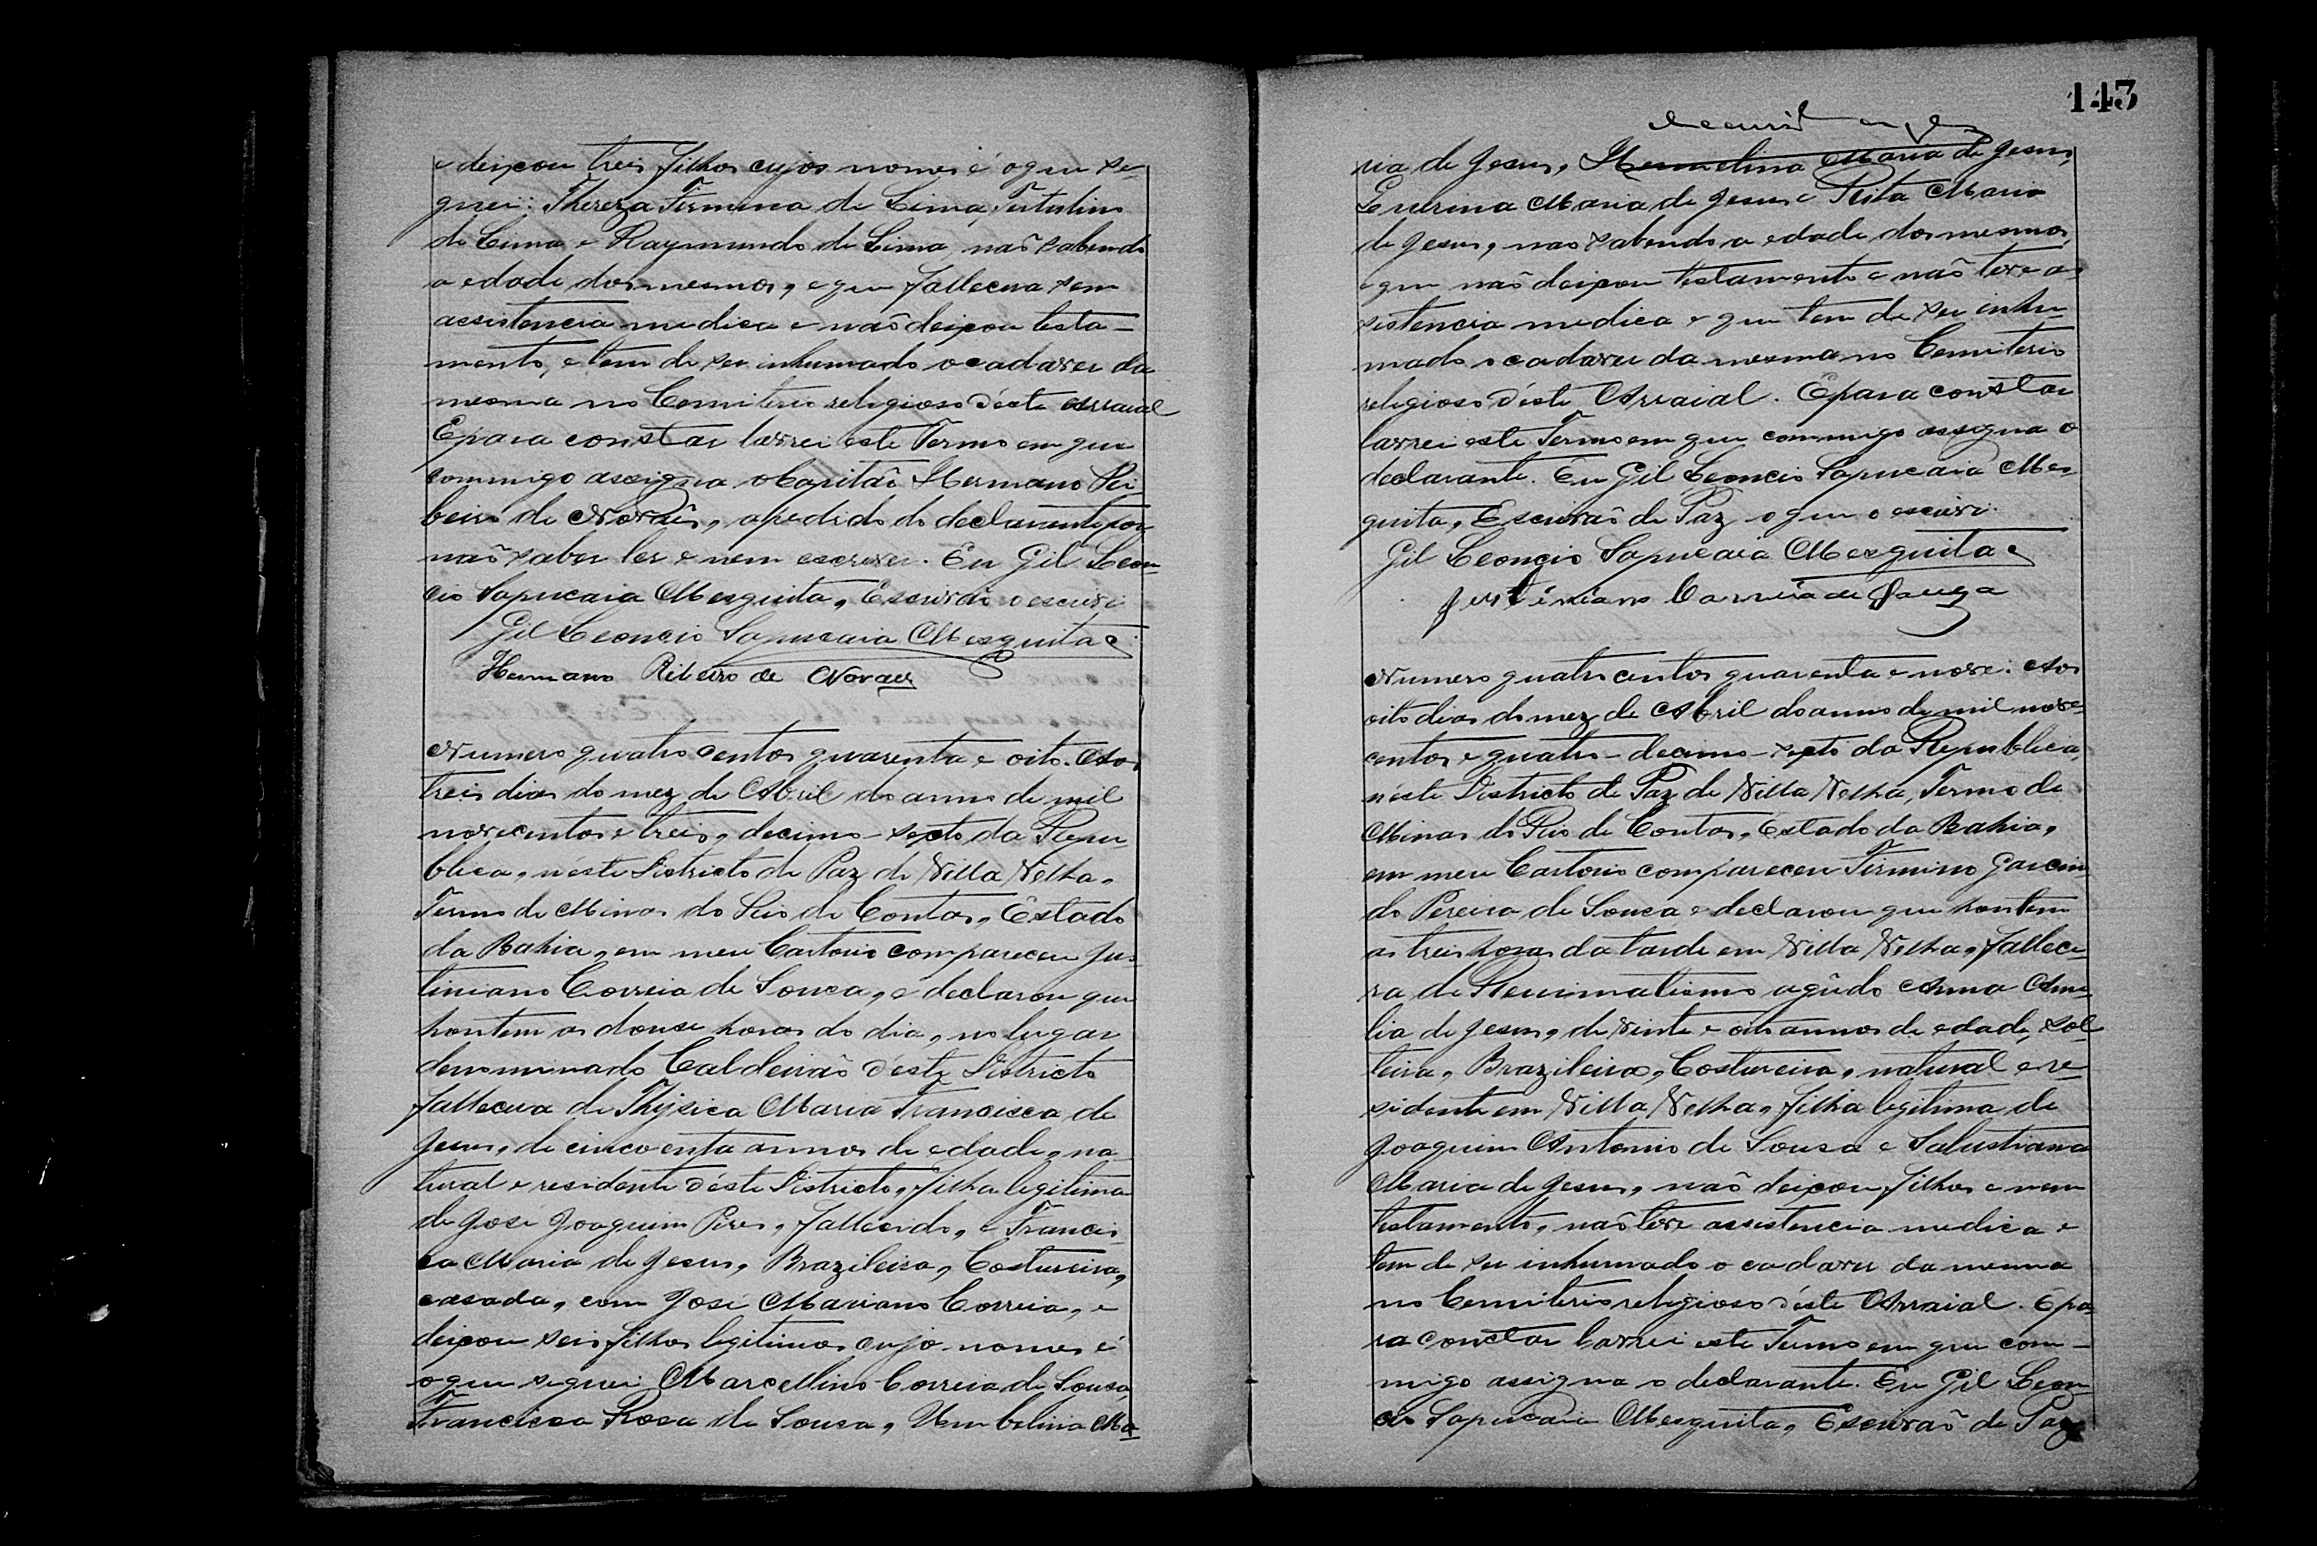 e deixou treis filhos cujos nomes é o que se-
guei: Thereza Firmina de Lima, Tertulino
de Lima e Raymundo de Lima, naõ sabendo
a edade dos mesmos, e que fallecera sem
assistencia medica e naõ deixou testa-
mento, e tem de ser inhumado o cadaver da
mesma no Cemiterio religioso d'éste Arraial
E para constar lavrei este Termo em que
commigo assigna o Capitaõ Hermano Ri-
beiro de Novaes, a pedido do declarante por
naõ saber ler e nem escrever. Eu Gil Leon-
cio Sapucaia Mesquita, Escrivaõ o escrevi
Gil Leoncio Sapucaia Mesquita
Hermano Ribeiro de Novaes
Numero quatro centos quarenta e oito. Aos
treis dias do mez de Abril do anno de mil
novecentos e treis, decimo-sexto da Repu-
blica, n'éste Districto de Paz de Villa Velha,
Termo de Minas do Rio de Contas, Estado
da Bahia, em meu Cartorio compareceu Jus-
tiniano Correia de Souca, e declarou que
hontem as douse horas do dia, no lugar
denominado Caldeiraõ d'éste Districto
fallecera de Thysica Maria Francisca de
Jesus, de cincoenta annos de edade, na-
tural e residente d'éste Districto, filha legitima
de José Joaquim Pires, fallecido, e Francis-
ca Maria de Jesus, Brazileira, Costureira,
casada, com José Mariano Correia, e
deixou seis filhos legitimos cujo nomes é
o que seguei Marcellino Correia de Sousa
Francisca Rosa de Sousa, Umbelina Ma-
143
ria de Jesus, Maria de Jesus,
Maria de Jesus e Rita Maria
de Jesus, nao sabendo a edade dos mesmos,
e que naõ deixou testamento e naõ teve as-
sistencia medica e que tem de ser inhu-
mado o cadaver da mesma no Cemiterio
religioso d'éste Arraial. E para constar
lavrei este Termo em que commigo assigna o
declarante. Eu Gil Leoncio Sapucaia Mes-
quita, Escrivaõ de Paz o que o escrevi.
Gil Leoncio Sapucaia Mesquita
Justiniano Correia de Souza
Numero quatro centos quarenta e nove. Aos
oito dias do mez de Abril do anno de mil nove-
centos e quatro - decimo-sexto da Republica,
n'éste Districto de Paz de Villa Velha, Termo de
Minas do Rio de Contas, Estado da Bahia,
em meu Cartorio compareceu Firmino Garcin-
do Pereira de Souca e declarou que hontem
as treis horas da tarde em Villa Velha, fallece-
ra de Rheumatismo agúdo Anna Ame-
lia de Jesus, de vinte e oito annos de edade, sol-
teira, Brazileira, Costureira, natural e re-
sidente em Villa Velha, filha legitima de
Joaquim Antonio de Sousa e Salustiana
Maria de Jesus, naõ deixou filhos e nem
testamento, naõ teve assistencia medica e
tem de ser inhumado o cadaver da mesma
no Cemiterio religioso d'éste Arraial. E pa-
ra constar lavrei este Termo em que com-
migo assigna o declarante. Eu Gil Leon-
cio Sapucaia Mesquita, Escrivaõ de Paz